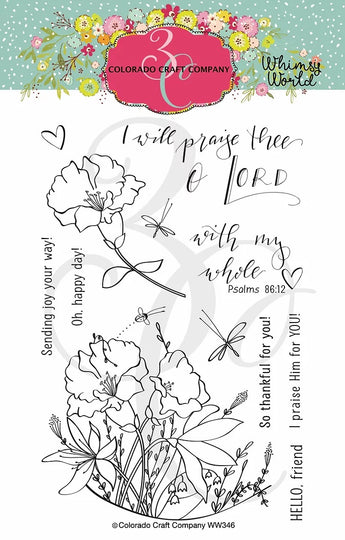 3C
COLORADO CRAFT COMPANY
Whimsy
World
I will praise thee
O LORD
with my
whole
Psalms 86:12
Sending joy your way!
Oh, happy day!
So thankful for you!
I praise Him for YOU!
HELLO, friend
©Colorado Craft Company WW346